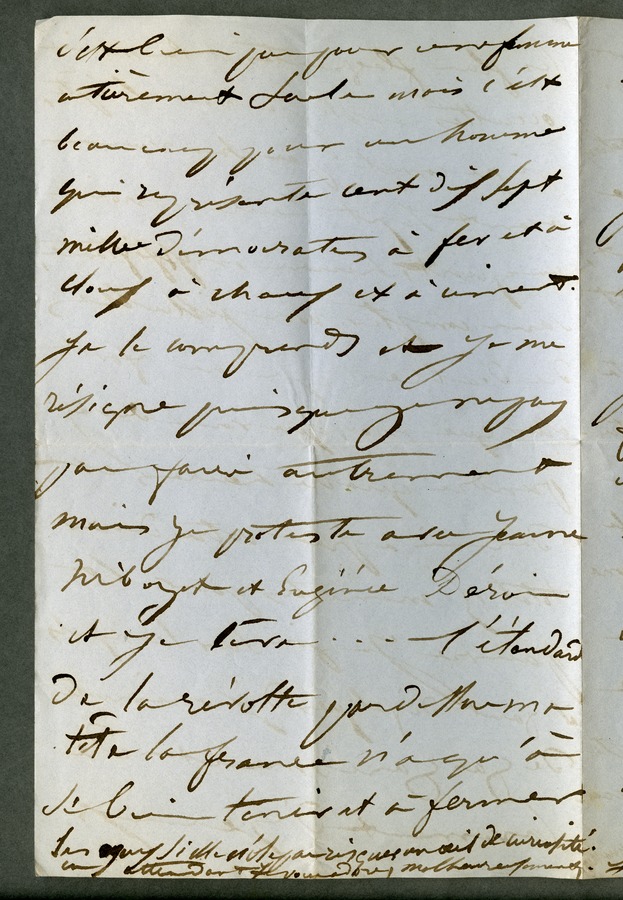 c'est bien peu pour une femme
entièrement seule mais c'est
beaucoup pour un homme
qui représente cent dix sept
mille démocrates à fer et à
clous à chaux et à ciment.
Je le comprends et je me
résigne puisque je ne puis
pas faire autrement
mais je proteste avec Jeanne
Niboyet et Eugénie Déroin
et je lève .... l'étendard
De la révolte par dessus ma
tête la france n'a qu'à
se bien tenir et à fermer
les yeux si elle n'ose pas risquer un œil de curiosité.
en attendant je vous malheureusement